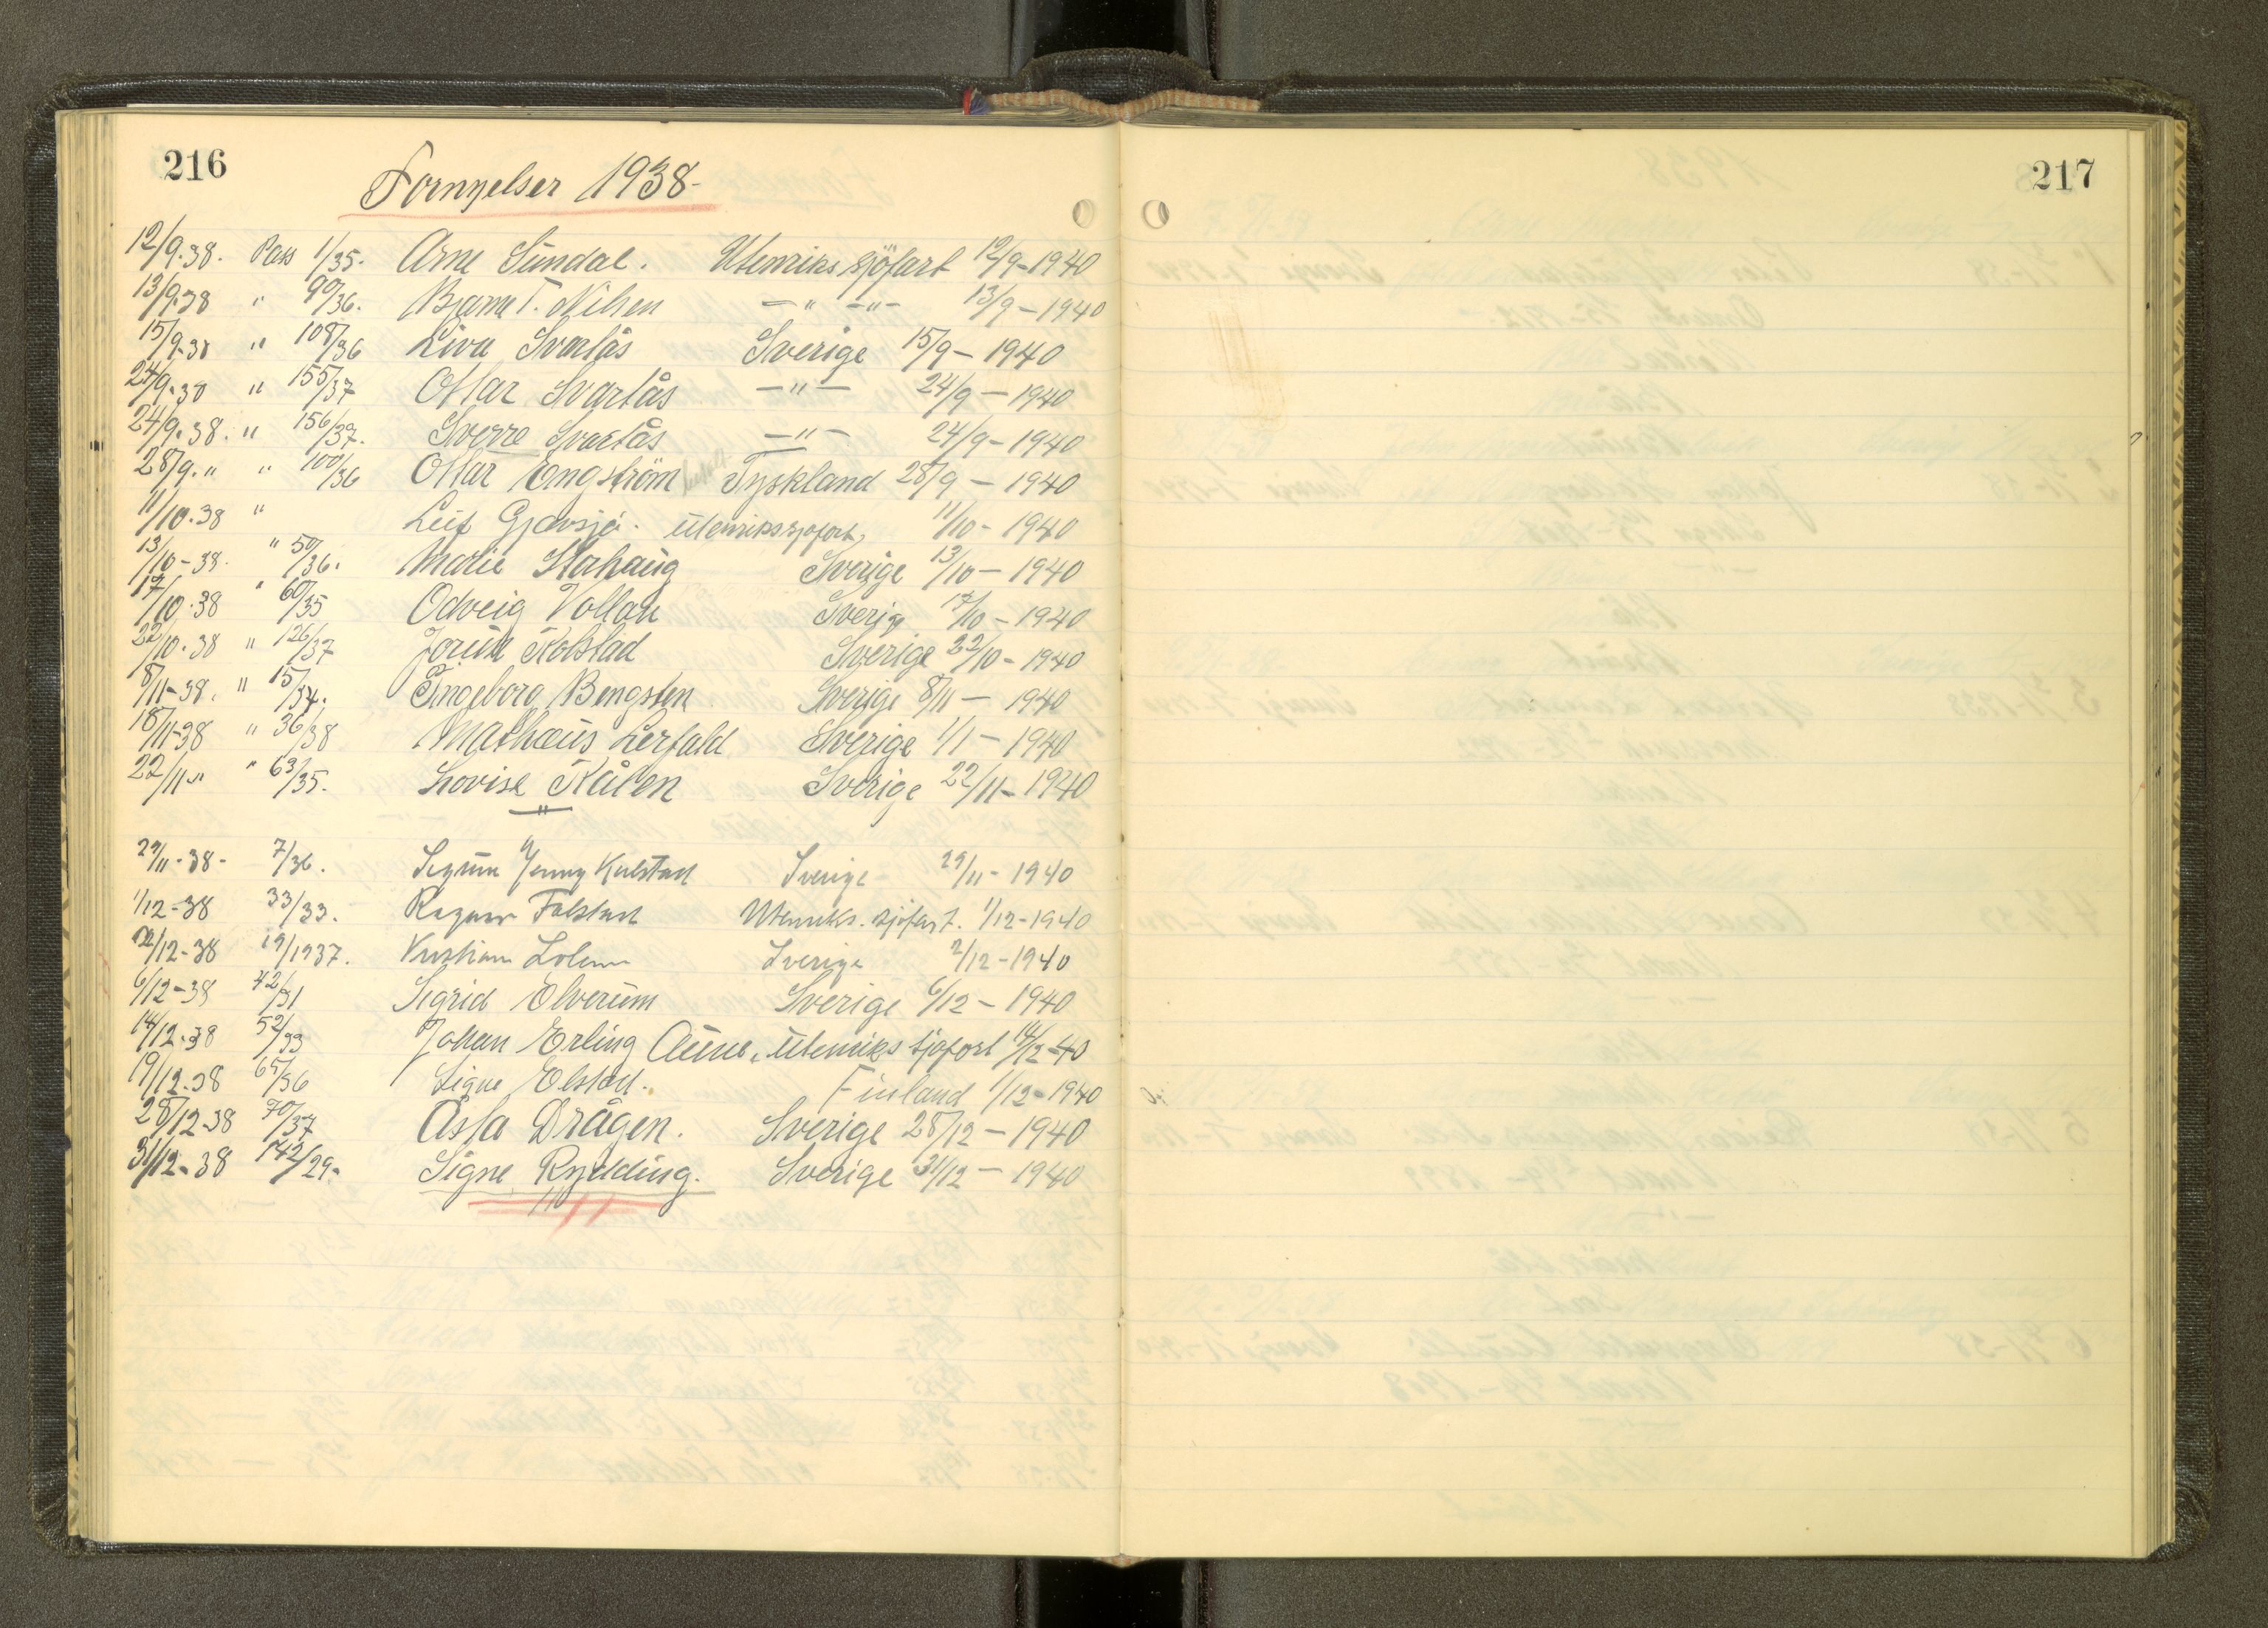 216
Fornyelser 1938-
12/9.38. Pass 1/35. Arne Sundal. Utenriks sjöfart 12/9-1940
13/9.38 " 90/36. Bjarne T. Nilsen —"— —"— 13/9-1940
15/9.38 " 108/36 Liva Svartås Sverige 15/9-1940
24/9.38 " 155/37 Ottar Svartås —"— 24/9-1940
24/9.38. " 156/37. Sverre Svartås —"— 24/9-1940
28/9. " " 100/36 Ottar Engström Tyskland 28/9-1940
11/10.38 " Leif Utenrikssjøfart, 11/10-1940
13/10-38. " 50/36. Marie Stahaug Sverige 13/10-1940
17/10.38 " 60/35 Odveig Vollan Sverige 17/10-1940
22/10.38 " 126/37 Jorun Rolstad Sverige 22/10-1940
8/11-38. " 15/34. Ingeborg Bengsten Sverige 8/11-1940
18/11-38 " 36/38 Mathæus Lerfald Sverige 1/1-1940
22/11 " " 63/35. Lovise Kålen Sverige 22/11-1940
—"—
29/11-38- 7/36. Sigrun Jenny Kulstad Sverige 29/11-1940
1/12-38 33/33. Ragnar Falstad Utenriks. sjøfart. 1/12-1940
2/12-38 19/1937. Kristian Sverige 2/12-1940
6/12-38 42/31 Sigrid Elverum Sverige 6/12-1940
14/12.38 52/33 Johan Erling Aune, Utenriks sjøfart 14/12-40
19/12.38 65/36 Signe Elstad. Finland 1/12-1940
28/12-38 70/37 Åsta Drågen. Sverige 28/12-1940
31/12-38 142/29- Signe Rydding. Sverige 31/12-1940
217